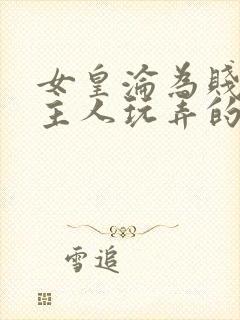 女皇淪為賤
主人玩弄的
雪追